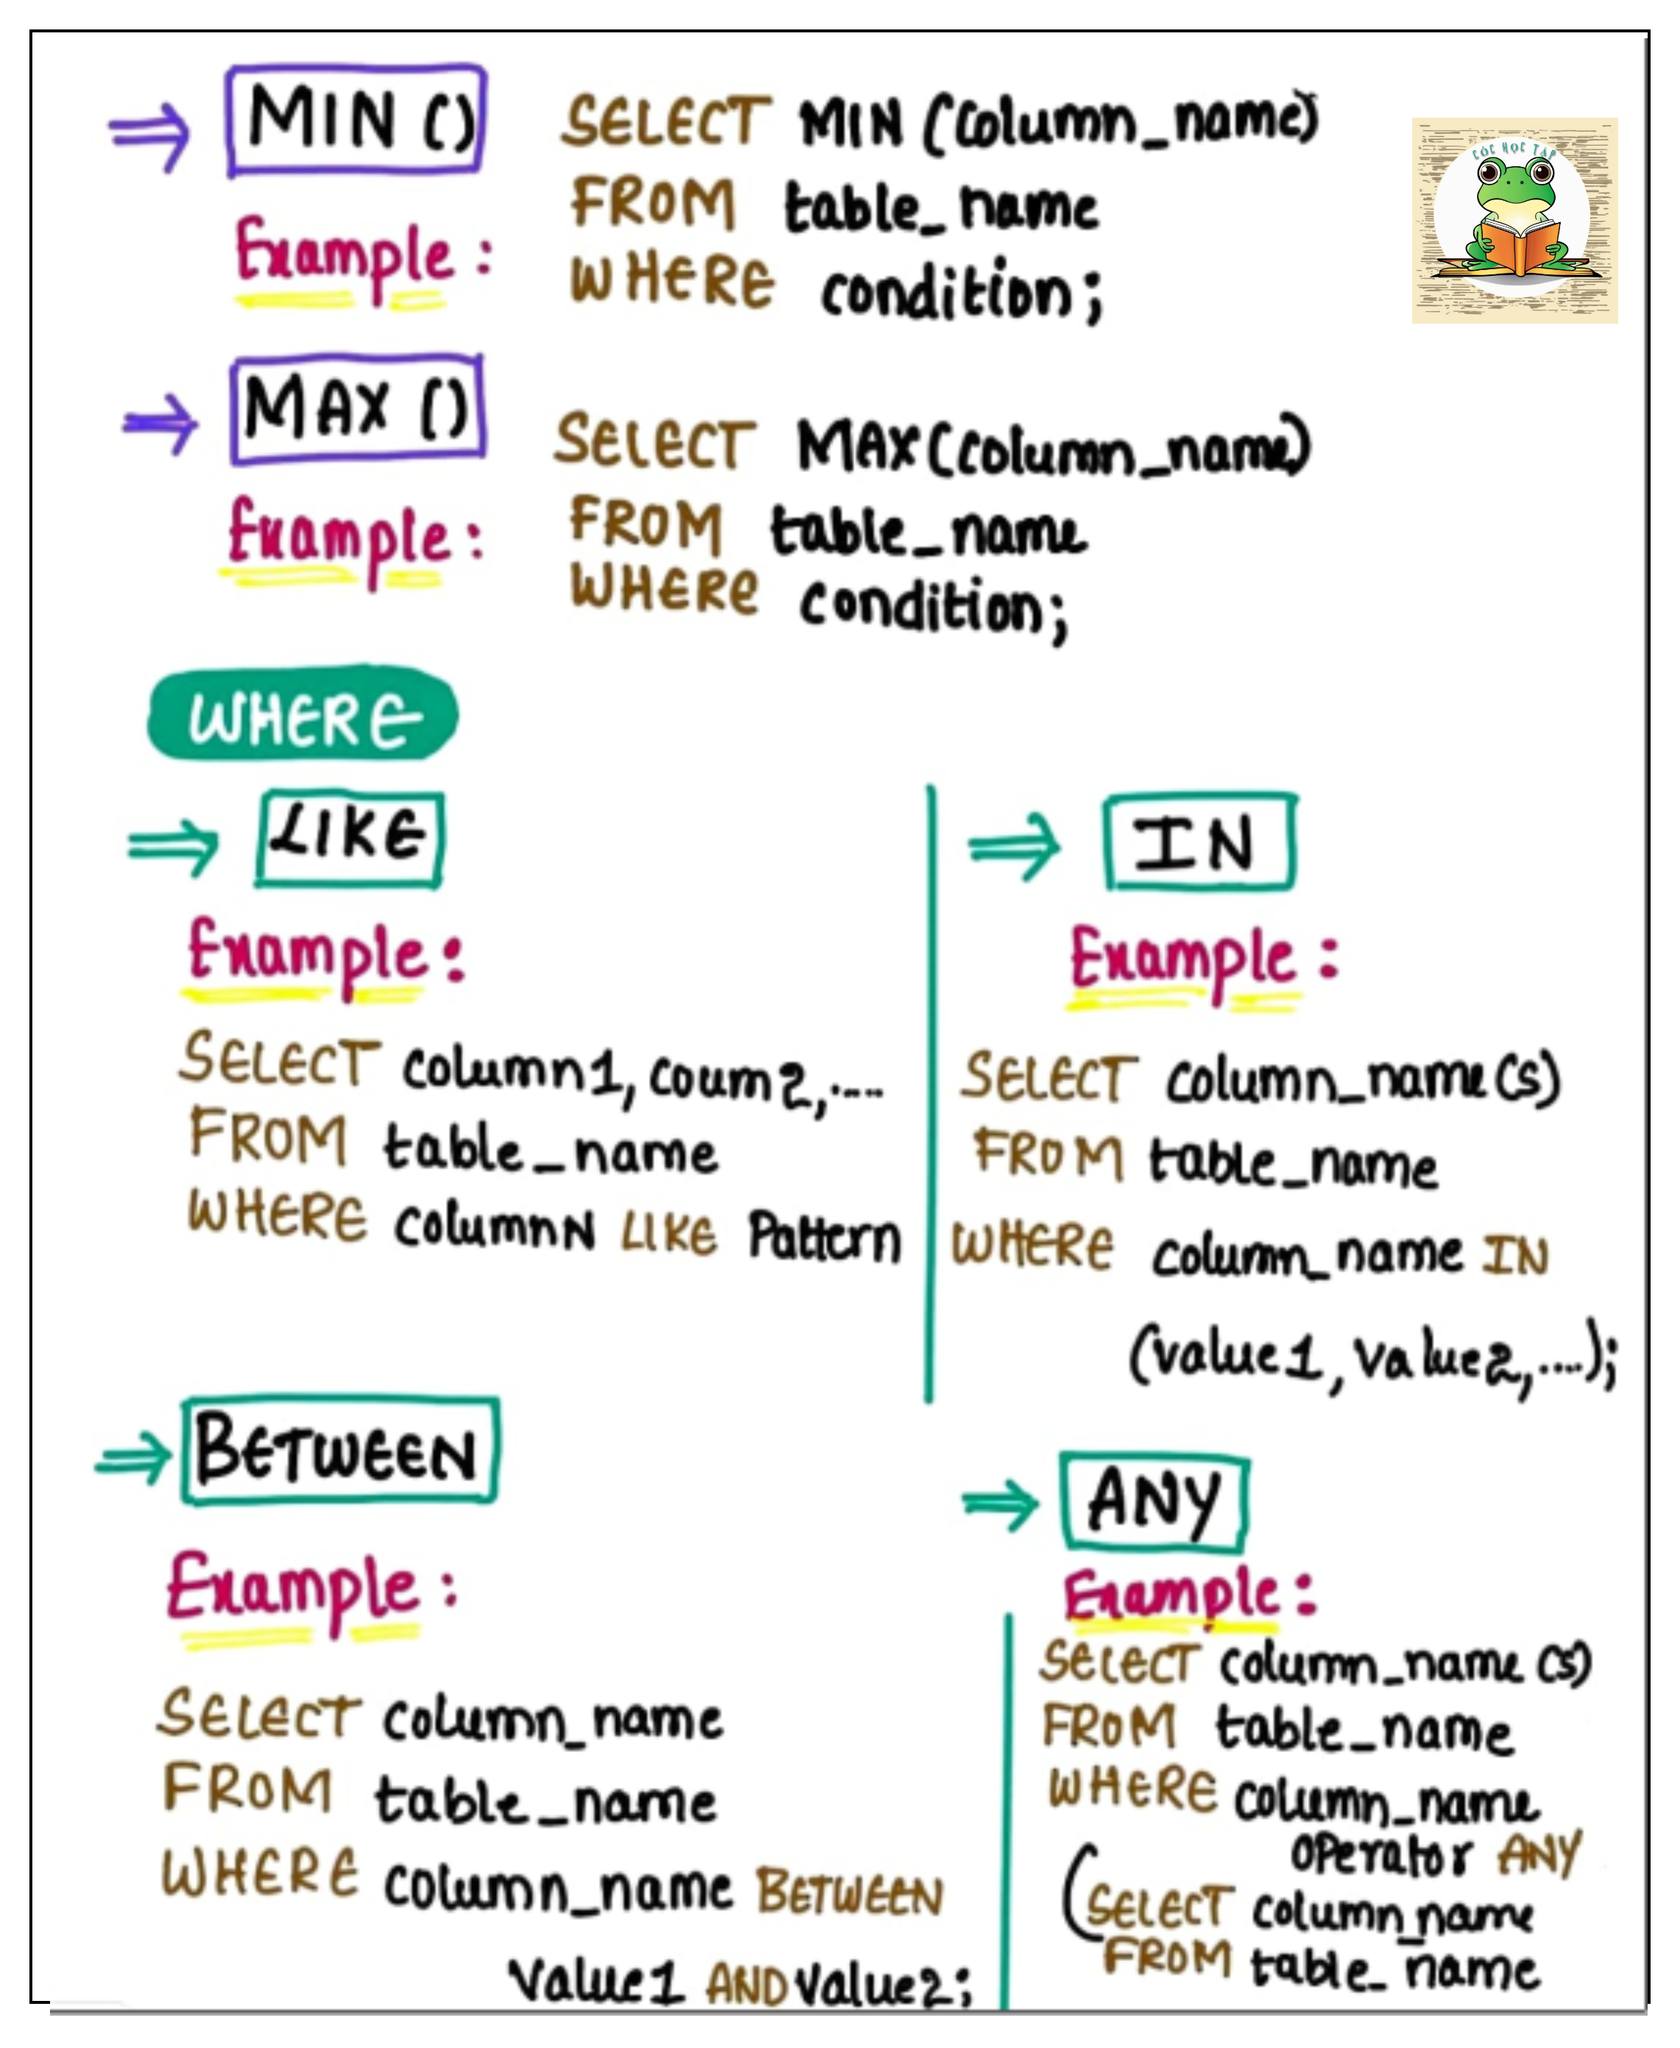 ⇒ MIN ()
SELECT MIN (column_name)
FROM table_name
WHERE condition;
Example:
CÓC HỌC TẬP
⇒ MAX ()
SELECT MAX(column_name)
FROM table_name
WHERE condition;
Example:
WHERE
⇒ LIKE
Example:
SELECT column1, coum2,....
FROM table_name
WHERE columnN LIKE Pattern
⇒ IN
Example:
SELECT column_name(s)
FROM table_name
WHERE column_name IN
(value1, value2,....);
⇒ BETWEEN
Example:
SELECT column_name
FROM table_name
WHERE column_name BETWEEN
Value1 AND Value2;
⇒ ANY
Example:
SELECT column_name(s)
FROM table_name
WHERE column_name
operator ANY
(SELECT column_name
FROM table_name